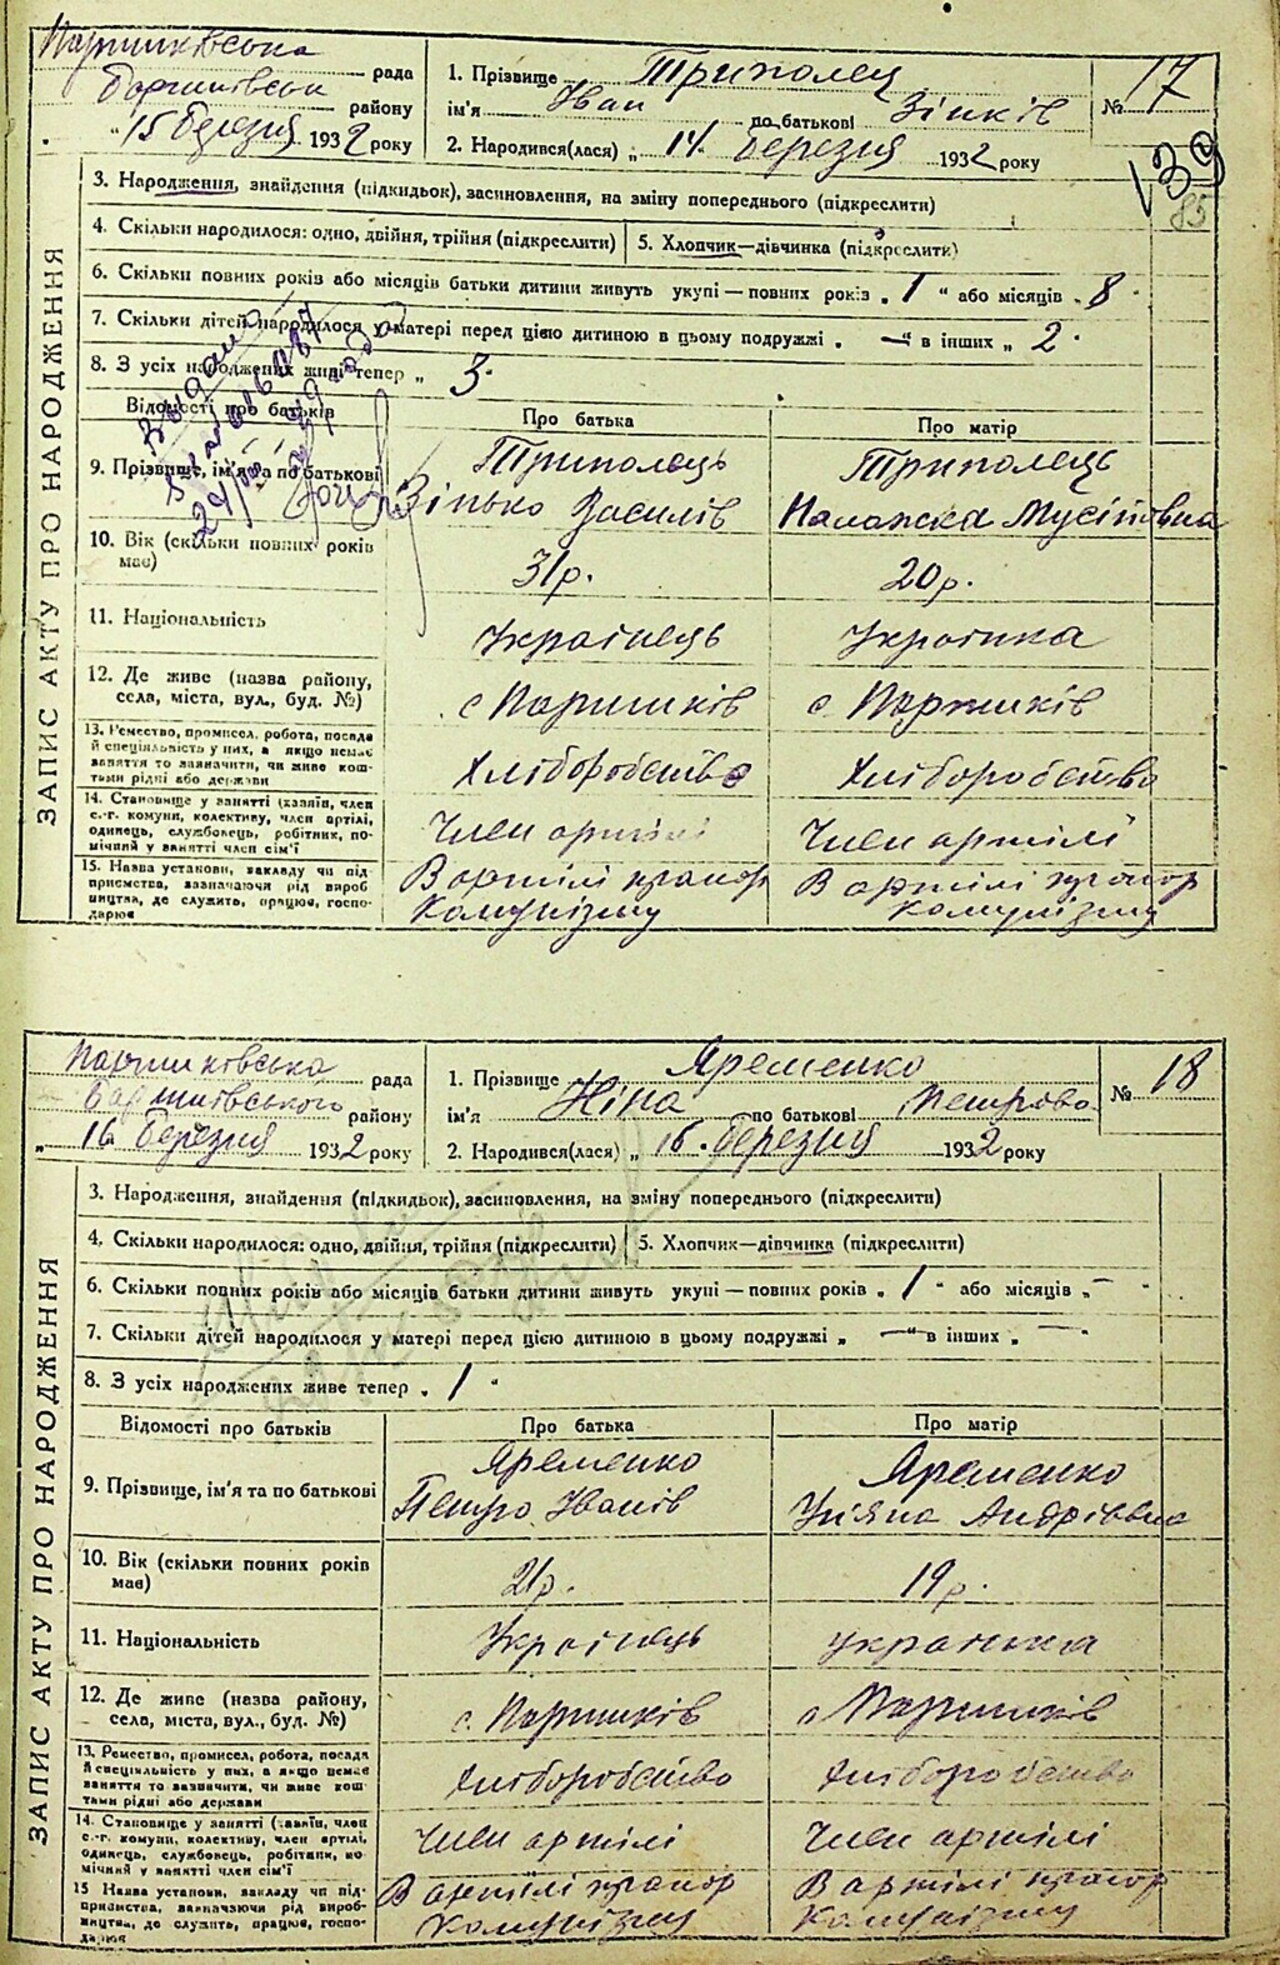 Паришківська рада
Баришівськ району
"15 березня 1932 року
1. Прізвище Триполец
ім'я Іван по батькові Зінків
2. Народився(лася) „ 14 березня 1932 року
№ 17
139
85
ЗАПИС АКТУ ПРО НАРОДЖЕННЯ
3. Народження, знайдення (підкидьок), засиновлення, на зміну попереднього (підкреслити)
4. Скільки народилося: одно, двійня, трійня (підкреслити) 5. Хлопчик—дівчинка (підкреслити)
6. Скільки повних років або місяців батьки дитини живуть укупі — повних років „ 1 " або місяців „ 8 "
7. Скільки дітей народилося у матері перед цією дитиною в цьому подружжі „ — " в інших „ 2 "
8. З усіх народжених живе тепер „ 3 "
Відомості про батьків Про батька Про матір
9. Прізвище, ім'я та по батькові
Триполець Зінько Василів
Триполець Палажка Мусіївна
10. Вік (скільки повних років має) 31р. 20р.
11. Національність Українець Українка
12. Де живе (назва району, села, міста, вул., буд. №) с Паришків с. Паришків
13. Ремество, промисел, робота, посада й спеціяльність у них, а якщо немає заняття то зазначити, чи живе коштами рідні або держави
Хліборобство Хліборобство
14. Становище у занятті (хазяїн, член с.-г. комуни, колективу, член артілі, одинець, службовець, робітник, помічний у занятті член сім'ї
Член артілі Член артілі
15. Назва установи, закладу чи підприємства, зазначаючи рід виробництва, де служить, працює, господарює
В артілі прапор Комунізму
В артілі прапор комунізму
Паришківська рада
Баришівського району
„ 16 березня 1932 року
1. Прізвище Яременко
ім'я Ніна по батькові Петрова
2. Народився(лася) „ 16. березня 1932 року
№ 18
ЗАПИС АКТУ ПРО НАРОДЖЕННЯ
3. Народження, знайдення (підкидьок), засиновлення, на зміну попереднього (підкреслити)
4. Скільки народилося: одно, двійня, трійня (підкреслити) 5. Хлопчик—дівчинка (підкреслити)
6. Скільки повних років або місяців батьки дитини живуть укупі — повних років „ 1 " або місяців „ — "
7. Скільки дітей народилося у матері перед цією дитиною в цьому подружжі „ — " в інших „ — "
8. З усіх народжених живе тепер „ 1 "
Відомості про батьків Про батька Про матір
9. Прізвище, ім'я та по батькові
Яременко Петро Іванів
Яременко Уляна Андріївна
10. Вік (скільки повних років має) 21р. 19р.
11. Національність Українець українка
12. Де живе (назва району, села, міста, вул., буд. №) с. Паришків с Паришків
13. Ремество, промисел, робота, посада й спеціяльність у них, а якщо немає заняття то зазначити, чи живе коштами рідні або держави
Хліборобство Хліборобство
14. Становище у занятті (хазяїн, член с.-г. комуни, колективу, член артілі, одинець, службовець, робітник, помічний у занятті член сім'ї
Член артілі Член артілі
15 Назва установи, закладу чи підприємства, зазначаючи рід виробництва, де служить, працює, господарює
В артілі прапор Комунізму
В артілі прапор комунізму